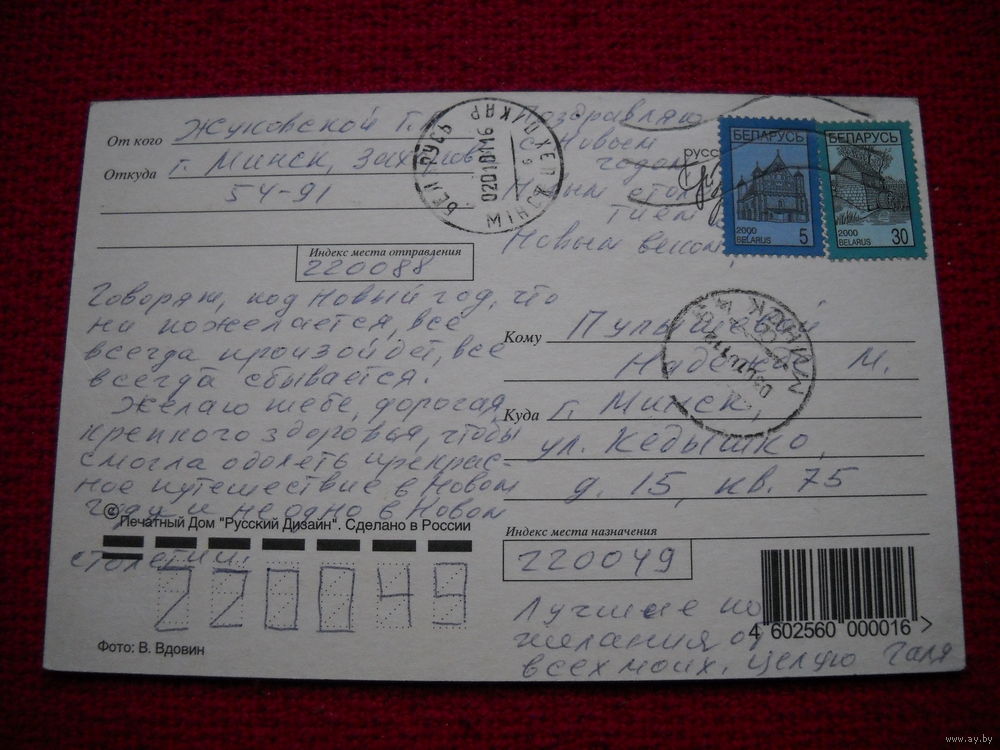 От кого Жуковской Г.
Откуда г. Минск,
54-91
Индекс места отправления
220088
Поздравляю
с Новым
годом,
Новым столе-
тием
Новым веком,
БЕЛАРУСЬ
2000
BELARUS 5
БЕЛАРУСЬ
2000
BELARUS 30
Говорят, под Новый год, что
ни пожелается, всё
всегда произойдет, все
всегда сбывается.
Желаю тебе, дорогая,
крепкого здоровья, чтобы
смогла одолеть прекрас-
ное путешествие в Новом
году и не одно в Новом
столетии.
© Печатный Дом "Русский Дизайн". Сделано в России
220049
Фото: В. Вдовин
Кому
М.
Куда г. Минск,
ул. Кедышко,
д. 15, кв. 75
Индекс места назначения
220049
4 602560 000016 >
Лучшие по
желания от
всех моих. Целую Галя
www.ay.by